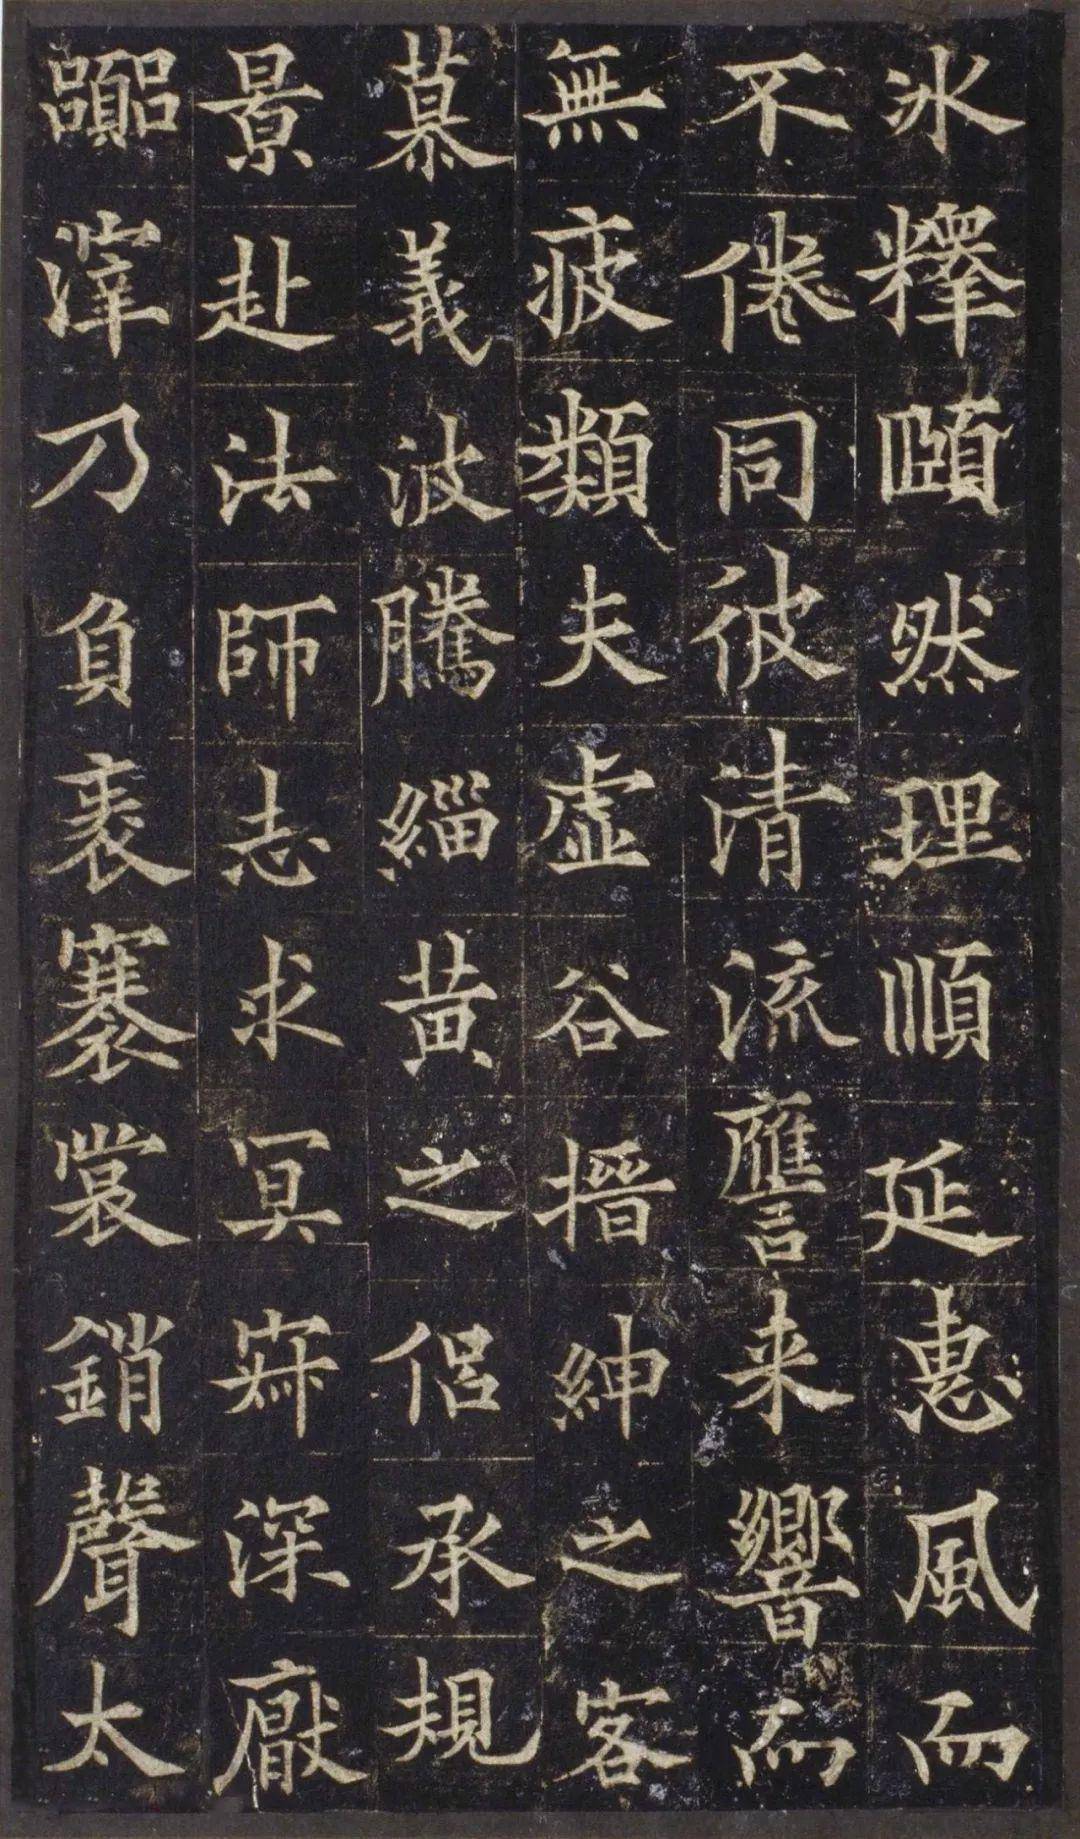 冰釋頤然理順延惠風而
不倦同彼清流譍来響而
無疲類夫虛谷搢紳之客
慕義波騰緇黄之侶承規
景赴法師志求冥寂深厭
囂滓乃負袠褰裳銷聲太